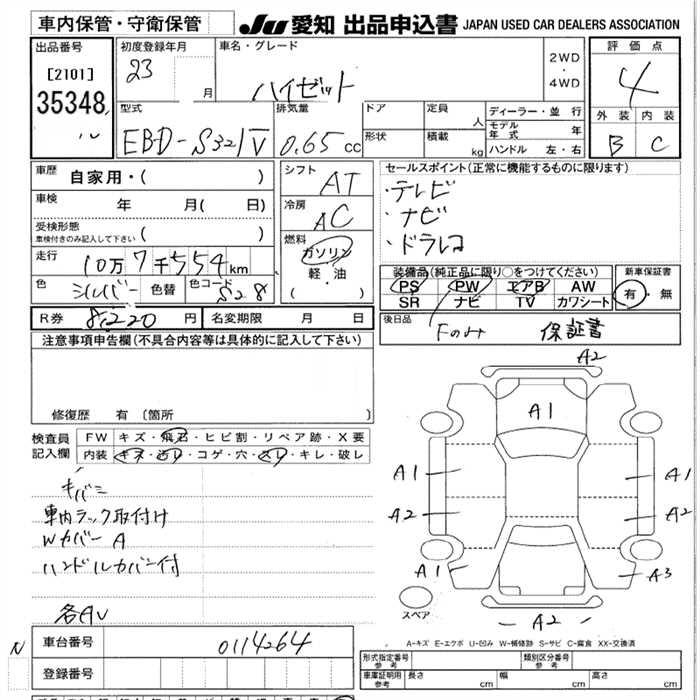 車内保管・守衛保管
JU 愛知 出品申込書 JAPAN USED CAR DEALERS ASSOCIATION
出品番号
[2101]
35348
初度登録年月
23
月
車名・グレード
ハイゼット
2WD
・
4WD
評価点
4
外装 内装
B C
型式
EBD-S321V
排気量
0.65 cc
ドア
定員
人
形状
積載
kg
ディーラー・並行
モデル年式 年
ハンドル 左・右
車歴
自家用・( )
車検 年 月( 日)
受検形態
車検付きのみ記入して下さい ( )
走行
10万7千554km
色
シルバー
色替
色コード
S28
シフト
AT
冷房
AC
燃料
ガソリン
軽・油
( )
セールスポイント(正常に機能するものに限ります)
・テレビ
・ナビ
・ドラレコ
装備品(純正品に限り○をつけてください)
PS PW エアB AW
SR ナビ TV カワシート
新車保証書
有・無
R券 8,220 円
名変期限 月 日
後日品
Fのみ
保証書
注意事項申告欄(不具合内容等は具体的に記入して下さい)
修復歴 有 〔箇所
検査員
記入欄
FW キズ・飛石・ヒビ割・リペア跡・X要
内装 キズ・汚レ・コゲ・穴・スレ・キレ・破レ
キバミ
車内ラック取付け
Wカバー A
ハンドルカバー付
各AU
A2
A1
A1 A1
A2 A2
A1 A3
A2
スペア
A-キズ E-エクボ U-凹み W-補修跡 S-サビ C-腐食 XX-交換済
N
車台番号
0114264
登録番号
形式指定番号
参考
類別区分番号
参考
車庫証明用
参考
長さ cm
幅 cm
高さ cm